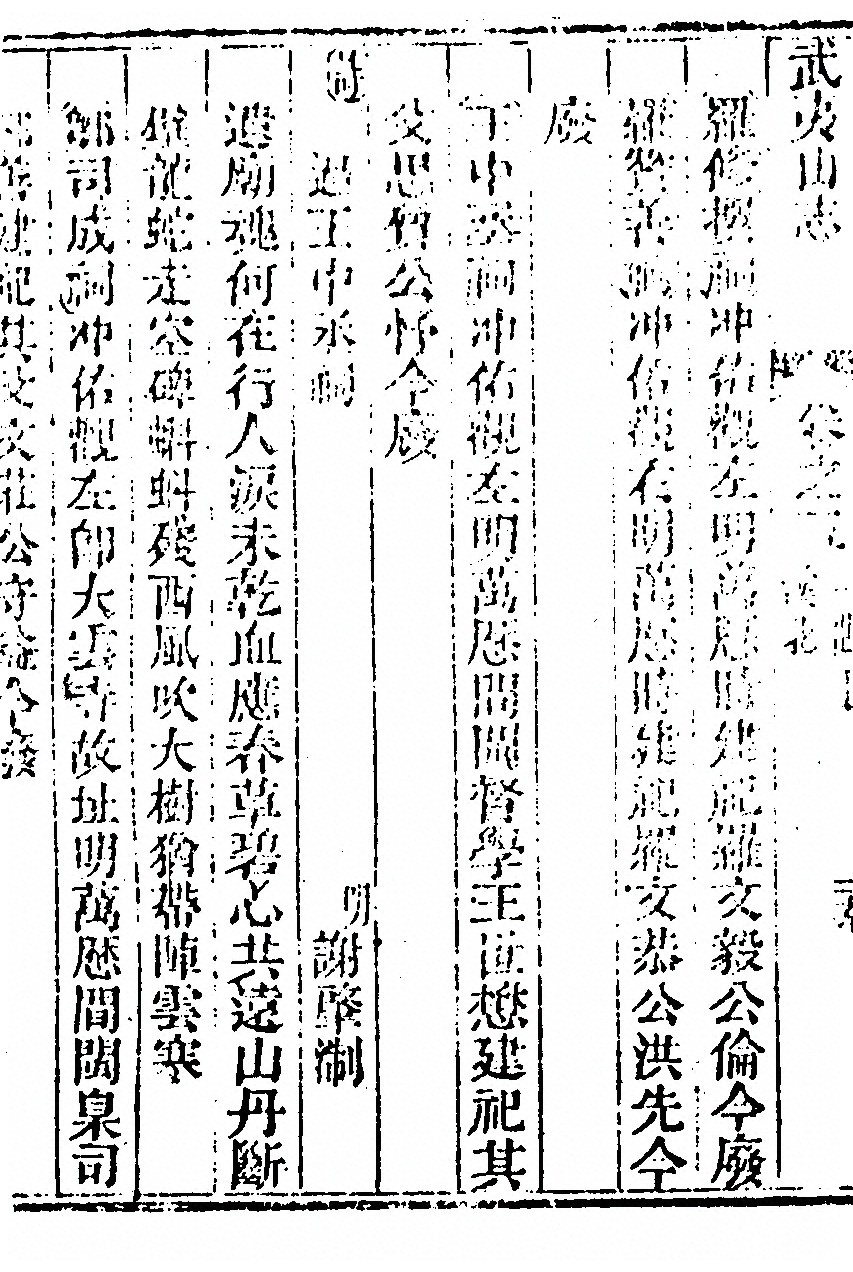 武夷山志　卷之　一曲
羅修撰祠冲佑觀左明萬厯時建祀羅文毅公倫今廢
羅贊善祠冲佑觀右明萬厯時建祀羅文恭公洪先今
廢
王中丞祠冲佑觀左明萬厯間閩督學王世懋建祀其
父思質公忬今廢
詩　過王中丞祠　明 謝肇淛
遺廟魂何在行人淚未乾血應春草碧心共遠山丹斷
龍蛇走空碑蝌蚪殘西風吹大樹猶帶陣雲寒
鄒司成祠冲佑觀左卽大雲寺故址明萬厯間閩臬司
建祀其父文莊公守益今廢